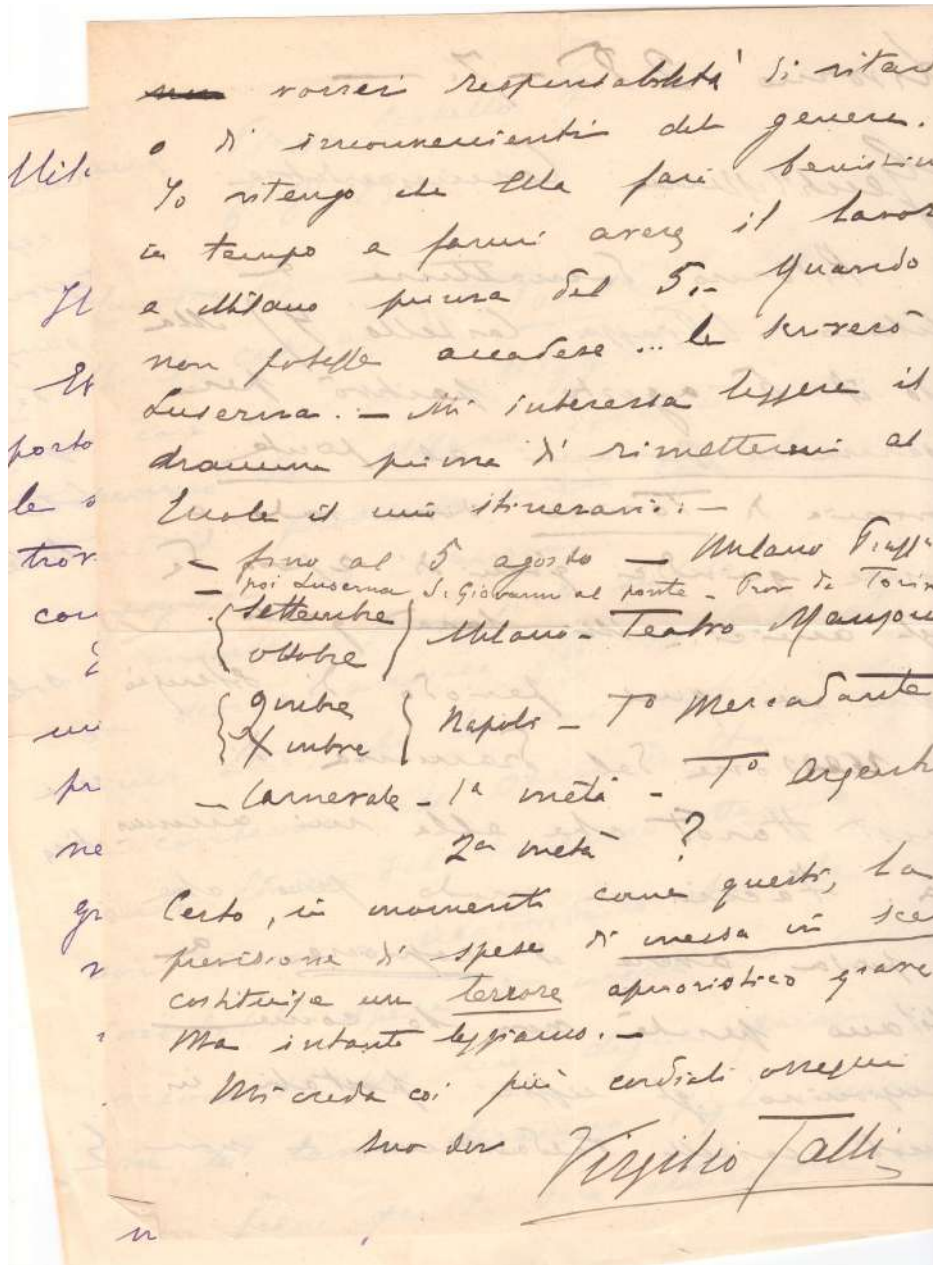 vorrei responsabilità di ritar
o di inconvenienti del genere.
Io ritengo che Ella farà benissim
in tempo a farmi avere il lavor
a Milano prima del 5.- Quando
non potesse accadere ... le scriverò
Luserna. — Mi interessa leggere il
dramma prima di rimettermi al
Eccole il mio itinerario: —
— fino al 5 agosto — Milano
— poi Luserna S. Giovanni al ponte - Prov di Torin
Settembre
ottobre
Milano - Teatro Manzoni
9mbre
Xmbre
Napoli - To Mercadante
- Carnevale - 1a metà - To Argenti
2a metà ?
Certo, in momenti come questi, la
previsione di spese di messa in sce
costituisce un terrore aprioristico grave
Ma intanto leggiamo. —
Mi creda coi più cordiali ossequi
suo dev
Virgilio Talli
Mil
Il
porto
le s
trov
con
pr
ne
gr